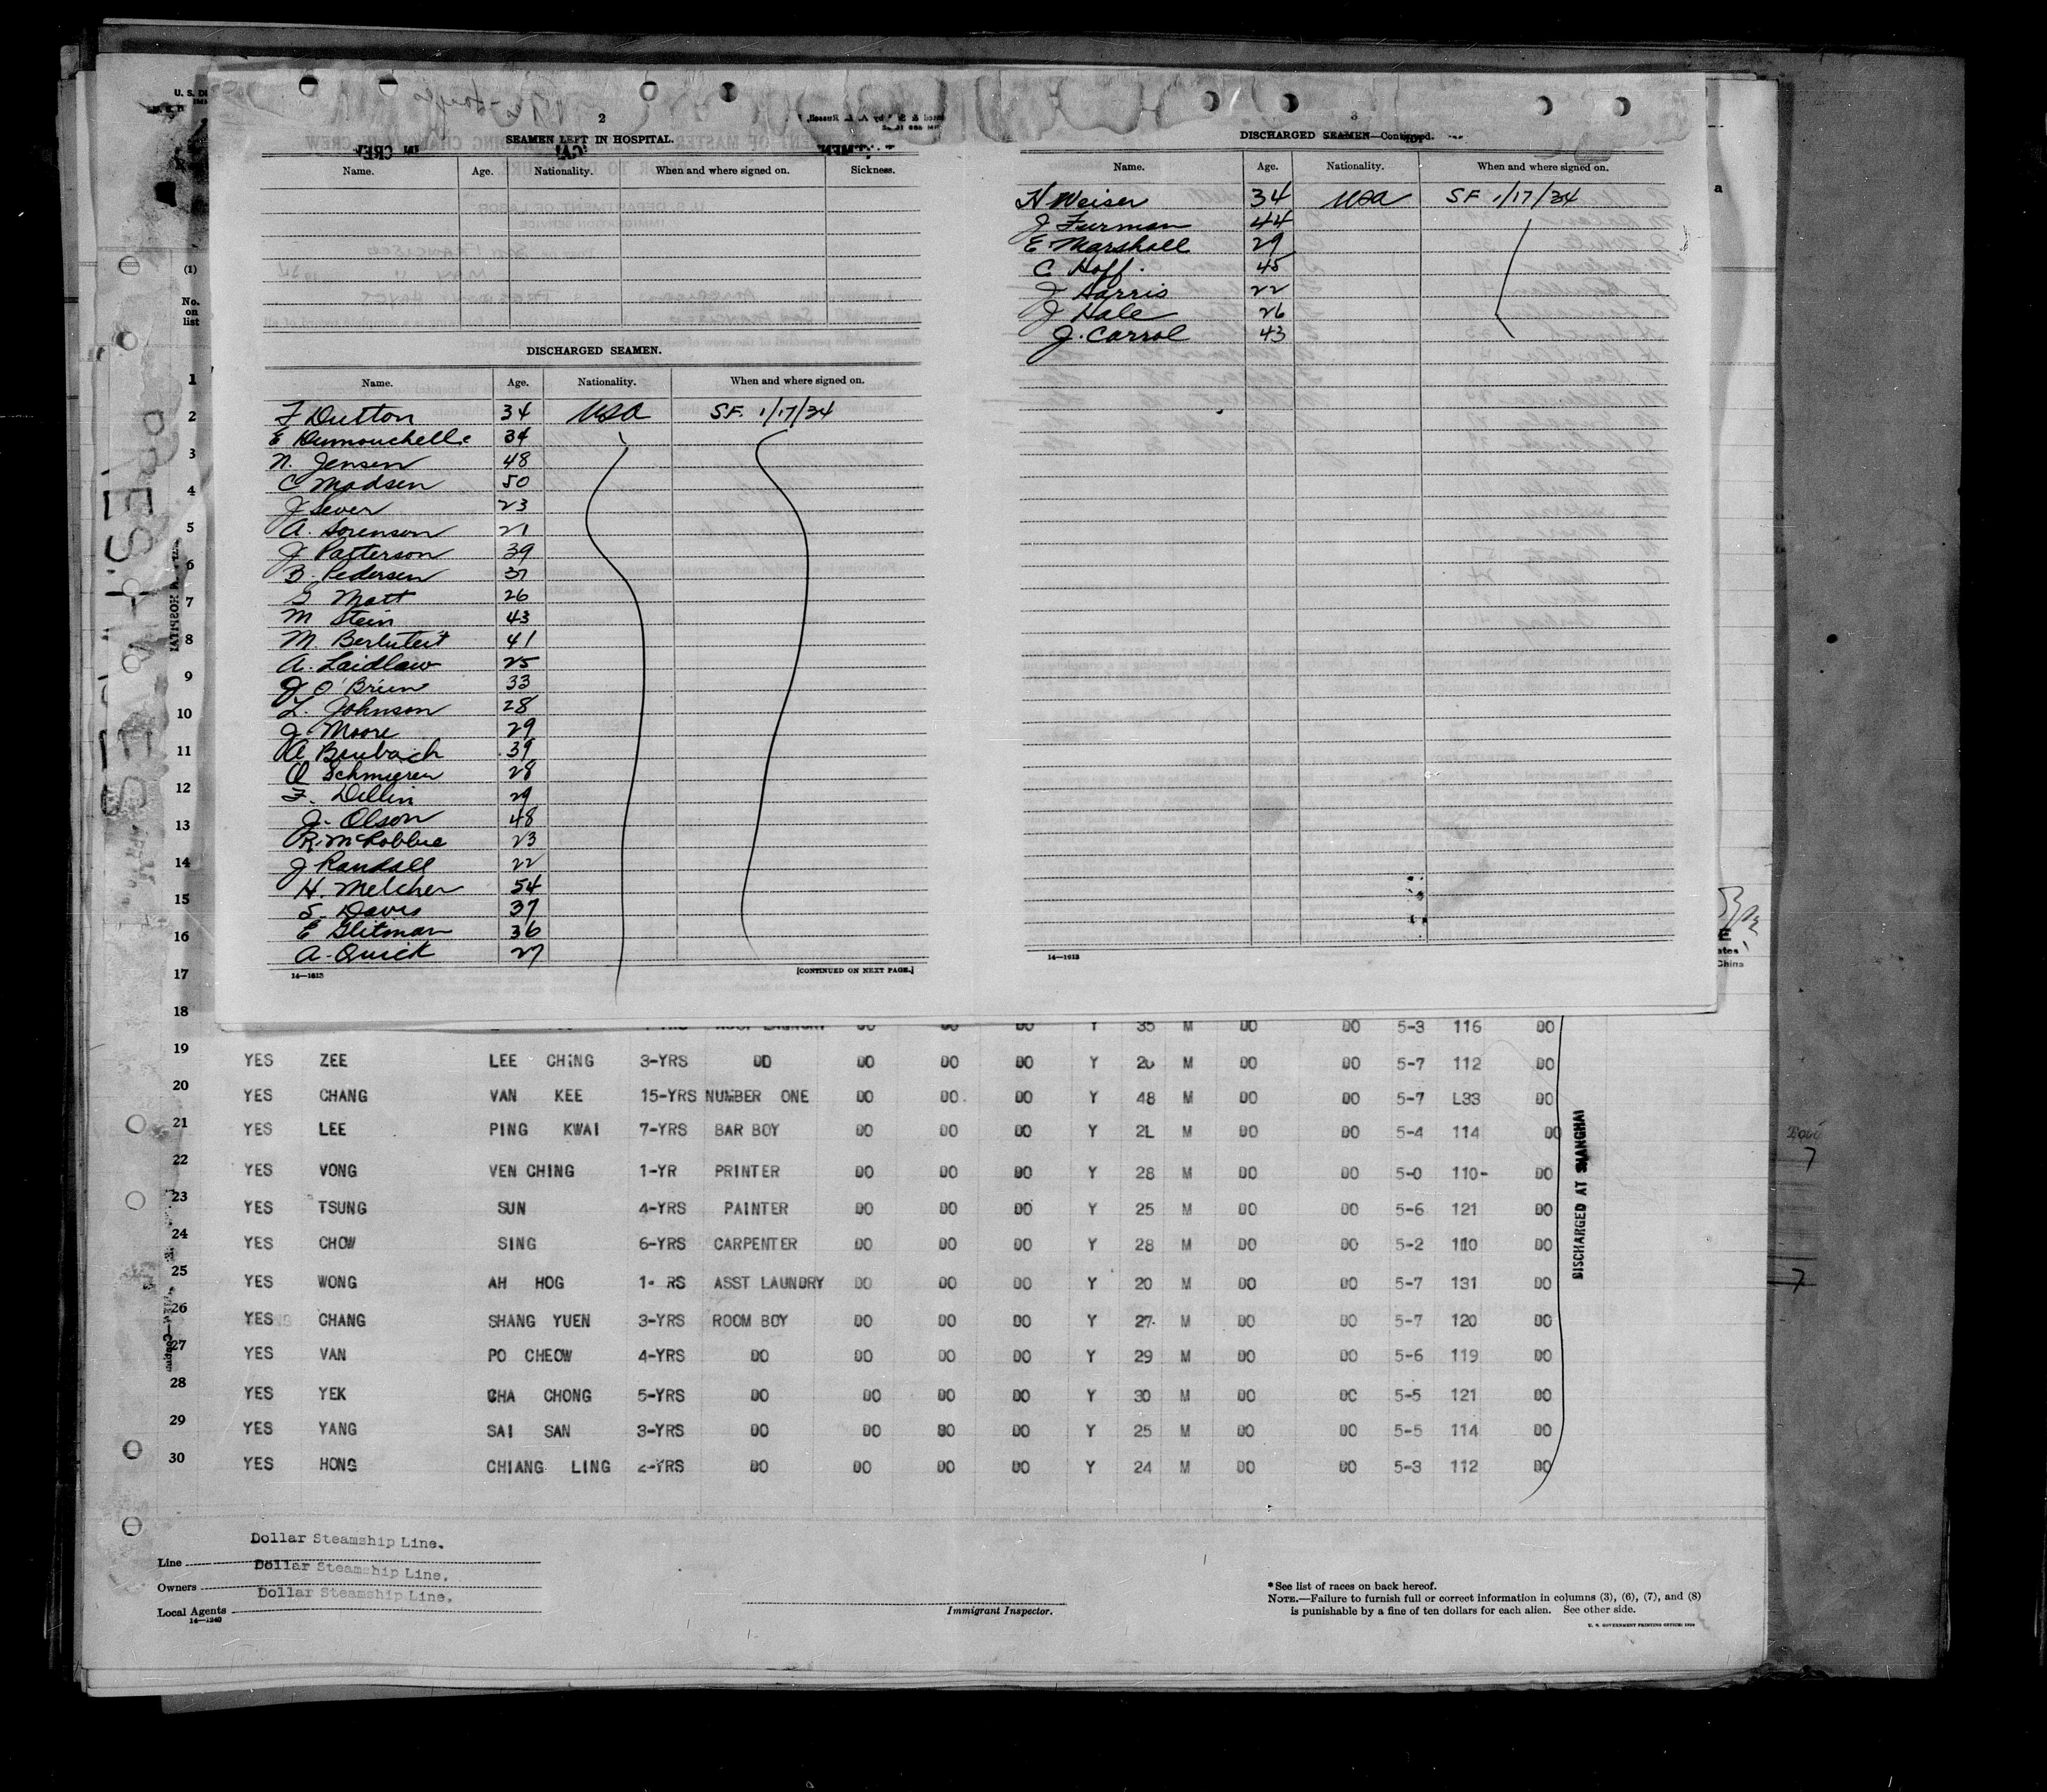 2
SEAMEN LEFT IN HOSPITAL.
Name. Age. Nationality. When and where signed on. Sickness.
DISCHARGED SEAMEN.
Name. Age. Nationality. When and where signed on.
F Dutton 34 USA S.F. 1/17/34
E Dumouchelle 34
N. Jensen 48
C Madsen 50
J Sever 23
A. Sorenson 21
J Patterson 39
B. Pedersen 37
S Matt 26
M Stein 43
M. Berluteit 41
A. Laidlaw 25
J O'Brien 33
L. Johnson 28
J Moore 29
A Baubach 39
O Schmieren 28
F. Dillin 29
J. Olson 48
R. McRobbie 23
J Randall 22
H. Melcher 54
S. Davis 37
E Glitman 36
A. Quick 27
14—1613 [CONTINUED ON NEXT PAGE.]
3
DISCHARGED SEAMEN—Continued.
Name. Age. Nationality. When and where signed on.
H Weiser 34 USA SF 1/17/34
J Furman 44
E Marshall 29
C Hoff. 45
J Harris 22
J Hale 26
J. Carrol 43
14—1613
U. S. DE
(1)
No. on list
1
2
3
4
5
6
7
8
9
10
11
12
13
14
15
16
17
18 35 M DO DO 5-3 116 DO
19 YES ZEE LEE CHING 3-YRS DO DO DO DO Y 20 M DO DO 5-7 112 DO
20 YES CHANG VAN KEE 15-YRS NUMBER ONE DO DO. DO Y 48 M DO DO 5-7 L33 DO
21 YES LEE PING KWAI 7-YRS BAR BOY DO DO DO Y 2L M DO DO 5-4 114 DO
22 YES VONG VEN CHING 1-YR PRINTER DO DO DO Y 28 M DO DO 5-0 110- DO
23 YES TSUNG SUN 4-YRS PAINTER DO DO DO Y 25 M DO DO 5-6 121 DO
24 YES CHOW SING 6-YRS CARPENTER DO DO DO Y 28 M DO DO 5-2 110 DO
25 YES WONG AH HOG 1- RS ASST LAUNDRY DO DO DO Y 20 M DO DO 5-7 131 DO
26 YES CHANG SHANG YUEN 3-YRS ROOM BOY DO DO DO Y 27 M DO DO 5-7 120 DO
27 YES VAN PO CHEOW 4-YRS DO DO DO DO Y 29 M DO DO 5-6 119 DO
28 YES YEK CHA CHONG 5-YRS DO DO DO DO Y 30 M DO DO 5-5 121 DO
29 YES YANG SAI SAN 3-YRS DO DO DO DO Y 25 M DO DO 5-5 114 DO
30 YES HONG CHIANG LING 2-YRS DO DO DO DO Y 24 M DO DO 5-3 112 DO
DISCHARGED AT SHANGHAI
Line Dollar Steamship Line.
Owners Dollar Steamship Line.
Local Agents Dollar Steamship Line.
14—1240
Immigrant Inspector.
*See list of races on back hereof.
NOTE.—Failure to furnish full or correct information in columns (3), (6), (7), and (8)
is punishable by a fine of ten dollars for each alien. See other side.
U. S. GOVERNMENT PRINTING OFFICE: 1929